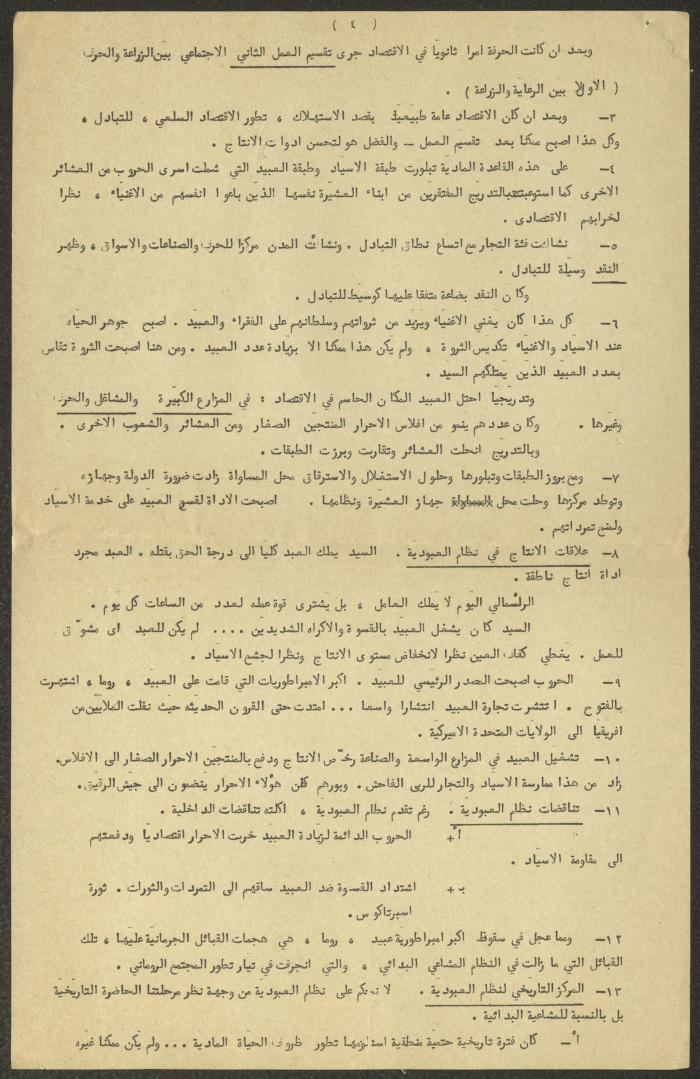 ( ٤ )
وبعد ان كانت الحرفة امرا ثانويا في الاقتصاد جرى تقسيم العمل الثاني الاجتماعي بين الزراعة والحرف
( الاولا بين الرعاية والزراعة ) .
٣— وبعد ان كان الاقتصاد عامة طبيعية بقصد الاستهلاك ، تطور الاقتصاد السلعي ، للتبادل ،
وكل هذا اصبح ممكنا بعد تقسيم العمل — والفضل هو لتحسن ادوات الانتاج .
٤— على هذه القاعدة المادية تبلورت طبقة الاسياد وطبقة العبيد التي شملت اسرى الحروب من العشائر
الاخرى كما استوعبت بالتدريج المفتقرين من ابناء العشيرة نفسها الذين باعوا انفسهم من الاغنياء ، نظرا
لخرابهم الاقتصادى .
٥— نشأت فئة التجار مع اتساع نطاق التبادل . ونشأت المدن مركزا للحرف والصناعات والاسواق ، وظهر
النقد وسيلة للتبادل .
وكان النقد بضاعة متفقا عليها كوسيط للتبادل .
٦— كل هذا كان يغني الاغنياء ويزيد من ثرواتهم وسلطانهم على الفقراء والعبيد . اصبح جوهر الحياه
عند الاسياد والاغنياء تكديس الثروة ، ولم يكن هذا ممكنا الا بزيادة عدد العبيد . ومن هنا اصبحت الثروة تقاس
بعدد العبيد الذين يمتلكهم السيد .
وتدريجيا احتل العبيد المكان الحاسم في الاقتصاد : في المزارع الكبيرة والمشاغل والحرف
وغيرها . وكان عددهم ينمو من افلاس الاحرار المنتجين الصغار ومن العشائر والشعوب الاخرى .
وبالتدريج انحلت العشائر وتقاربت وبرزت الطبقات .
٧— ومع بروز الطبقات وتبلورها وحلول الاستغلال والاسترقاق محل المساواة زادت ضرورة الدولة وجهازه
وتوطد مركزها وحلت محل جهاز العشيرة ونظامها . اصبحت الاداة لقسر العبيد على خدمة الاسياد
ولمنع تمرداتهم .
٨— علاقات الانتاج في نظام العبودية . السيد يملك العبد كليا الى درجة الحق بقتله . العبد مجرد
اداة انتاج ناطقة .
الرأسمالي اليوم لا يملك العامل ، بل يشترى قوة عمله لعدد من الساعات كل يوم .
السيد كان يشغل العبيد بالقسوة والاكراه الشديدين .... لم يكن للعبد اى مشوّق
للعمل . يغطي كفاف العين نظرا لانخفاض مستوى الانتاج ونظرا لجشع الاسياد .
٩— الحروب اصبحت المصدر الرئيسي للعبيد . اكبر الامبراطوريات التي قامت على العبيد ، روما ، اشتهرت
بالفتوح . انتشرت تجارة العبيد انتشارا واسعا ... امتدت حتى القرون الحديثه حيث نقلت الملايين من
افريقيا الى الولايات المتحدة الاميركية .
١٠— تشغيل العبيد في المزارع الواسعة والصناعة رخّص الانتاج ودفع بالمنتجين الاحرار الصغار الى الافلاس.
زاد من هذا ممارسة الاسياد والتجار للربى الفاحش . وبورهم كان هؤلاء الاحرار ينضمون الى جيش الرقيق.
١١— تناقضات نظام العبودية . رغم تقدم نظام العبودية ، اكلته تناقضات الداخلية .
أ+ الحروب الدائمة لزيادة العبيد خربت الاحرار اقتصاديا ودفعتهم
الى مقاومة الاسياد .
ب+ اشتداد القسوة ضد العبيد ساقهم الى التمردات والثورات . ثورة
اسبرتاكوس .
١٢— ومما عجل في سقوط اكبر امبراطورية عبيد ، روما ، هي هجمات القبائل الجرمانية عليها ، تلك
القبائل التي ما زالت في النظام المشاعي البدائي ، والتي انجرفت في تيار تطور المجتمع الروماني .
١٣— المركز التاريخي لنظام العبودية . لا نحكم على نظام العبودية من وجهة نظر مرحلتنا الحاضرة التاريخية
بل بالنسبة للمشاعية البدائية .
أ— كان فترة تاريخية حتمية منطقية استلزمها تطور ظروف الحياة المادية ... ولم يكن ممكنا غيره